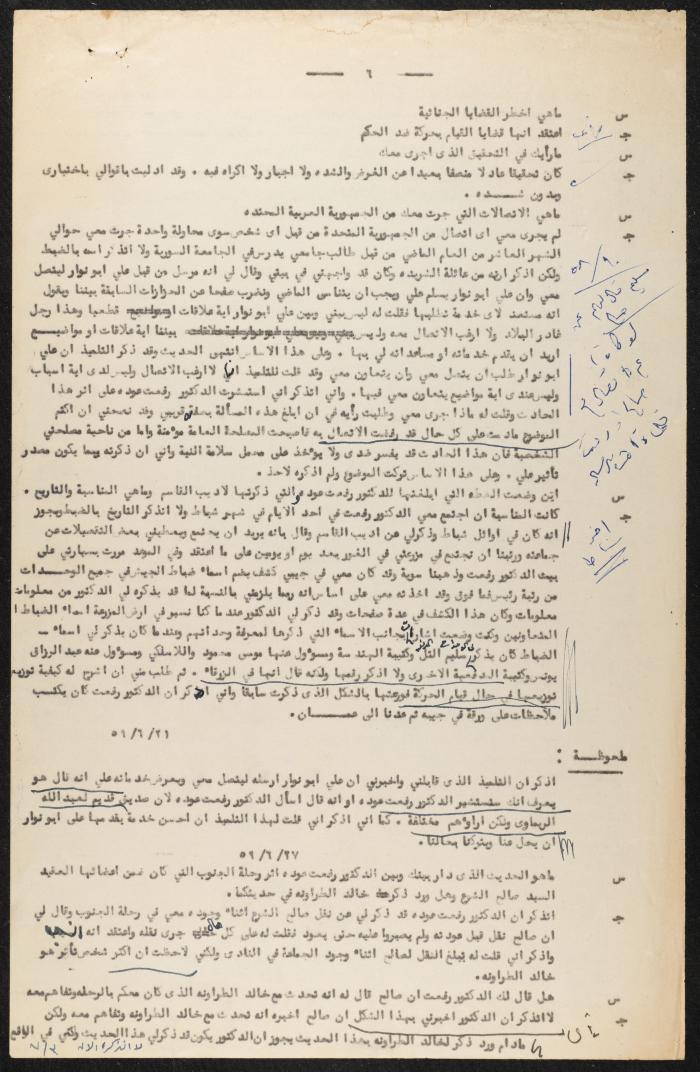 — ٦ —
س ماهي اخطر القضايا الجنائية
جـ اعتقد انها قضايا القيام بحركة ضد الحكم
س مارأيك في التحقيق الذى اجرى معك
جـ كان تحقيقا عادلا منصفا بعيدا عن الغرض والشده ولا اجبار ولا اكراه فيه . وقد ادليت باقوالي باختيارى
وبدون شـــده .
س ماهي الاتصالات التي جرت معك من الجمهورية العربية المتحده
جـ لم يجرى معي اى اتصال من الجمهورية المتحدة من قبل اى شخص سوى محاولة واحدة جرت معي حوالي
الشهر العاشر من العام الماضي من قبل طالب جامعي يدرس في الجامعة السورية ولا اتذكر اسمه بالضبط
ولكن اذكر انه من عائلة الشريده وكان قد واجهني في بيتي وقال لي انه مرسل من قبل علي ابو نوار ليتصل
معي وان علي ابو نوار يسلم علي ويجب ان يتناسى الماضي ونضرب صفحا عن الحزازات السابقة بيننا ويقول
انه مستعد لاى خدمة تطلبها فقلت له ليس بيني وبين علي ابو نوار اية علاقات قطعيا وهذا رجل
غادر البلاد ولا ارغب الاتصال معه وليس بيننا اية علاقات او مواضيـــع
اريد ان يقدم خدماته او مساعداته لي بها . وعلى هذا الاساس انتهى الحديث وقد ذكر التلميذ ان علي
ابو نوار طلب ان يتصل معي وان يتعاون معي وقد قلت للتلميذ اني لا ارغب الاتصال وليس لدى اية اسباب
وليس عندى اية مواضيع يتعاون معي فيها . واني اتذكر اني استشرت الدكتور رفعت عوده على اثر هذا
الحادث وقلت له ماذا جرى معي وطلبت رأيه في ان ابلغ هذه المسألة بصفة قريبي وقد نصحني ان اكتم
الموضوع مادمت على كل حال قد رفضت الاتصال به فاصبحت المصلحة العامة مؤمنة واما من ناحية مصلحتي
الشخصية فان هذا الحادث قد يفسر ضدى ولا يؤخذ على محمل سلامة النية واني ان ذكرته ربما يكون مصدر
تأثير علي . وعلى هذا الاساس تركت الموضوع ولم اذكره لاحد .
س اين وضعت الخطه التي ابلغتها للدكتور رفعت عوده والتي ذكرتها لاديب القاسم وماهي المناسبة والتاريخ .
جـ كانت المناسبة ان اجتمع معي الدكتور رفعت في احد الايام في شهر شباط ولا اتذكر التاريخ بالضبط ويجوز
انه كان في اوائل شباط وذكر لي عن اديب القاسم وقال بانه يريد ان يجتمع ويعطيني بعض التفصيلات عن
جماعته ورتبنا ان نجتمع في مزرعتي في الغور بعد يوم او يومين على ما اعتقد وفي الموعد مررت بسيارتي على
بيت الدكتور رفعت وذهبنا سوية وقد كان معي في جيبي كشف بضم اسماء ضباط الجيش في جميع الوحـــدات
من رتبة رئيس فما فوق وقد اخذته معي على اساس انه ربما يلزمني بالنسبة لما قد يذكره لي الدكتور من معلومات
معلومات وكان هذا الكشف في عدة صفحات وقد ذكر لي الدكتور عندما كنا نسير في ارض المزرعة اسماء الضباط ا
المتعاونين وكنت وضعت اشارات بجانب الاسماء التي ذكرها لمعرفة وحداتهم وعندما كان يذكر لي اسماء
الضباط كان يذكر سليم التل وكتيبة الهندسة ومسؤول عنها موسى محمود واللاسلكي ومسؤول عنه عبد الرزاق
يونس وكتيبة المدفعية الاخرى ولا اذكر رقمها ولذلك قال انها في الزرقاء . ثم طلب مني ان اشرح له كيفية توزيعـ
توزيعها في حال قيام الحركة فوزعتها بالشكل الذى ذكرت سابقا واني اذكر ان الدكتور رفعت كان يكتـــب
ملاحظات على ورقة في جيبه ثم عدنا الى عمـــان .
٥٩/٦/٢١
ملحوظـــة :
اذكر ان التلميذ الذى قابلني واخبرني ان علي ابو نوار ارسله ليتصل معي ويعرض خدماته علي انه قال هو
يعرف انك ستستشير الدكتور رفعت عوده او انه قال اسأل الدكتور رفعت عوده لان صديق قديم لعبد الله
الريماوى ولكن اراؤهم مختلفة . كما اني اذكر اني قلت لهذا التلميذ ان احسن خدمة يقدمها علي ابو نوار
ان يحل عنا ويتركنا بحالنا .
٥٩/٦/٢٧
س ماهو الحديث الذى دار بينك وبين الدكتور رفعت عوده اثر رحلة الجنوب التي كان ضمن اعضائها العقيد
السيد صالح الشرع وهل ورد ذكر خالد الطراونه في حديثكما .
جـ اتذكر ان الدكتور رفعت عوده قد ذكر لي عن نقل صالح الشرع اثناء وجوده معي في رحلة الجنوب وقال لي
ان صالح نقل قبل عودته ولم يصبروا عليه حتى يعود فقلت له على كل حال جرى نقله واعتقد انه
واذكر اني قلت له يبلغ النقل لصالح اثناء وجود الجماعة في النادى ولكني لاحظت ان اكثر شخص تأثر هو
خالد الطراونه .
س هل قال لك الدكتور رفعت ان صالح قال له انه تحدث مع خالد الطراونه الذى كان معكم بالرحله وتفاهم معه
جـ لا اتذكر ان الدكتور اخبرني بهذا الشكل ان صالح اخبره انه تحدث مع خالد الطراونه وتفاهم معه ولكن
مادام ورد ذكر لخالد الطراونه بهذا الحديث يجوز ان الدكتور يكون قد ذكر لي هذا الحديث ولكني في الواقع